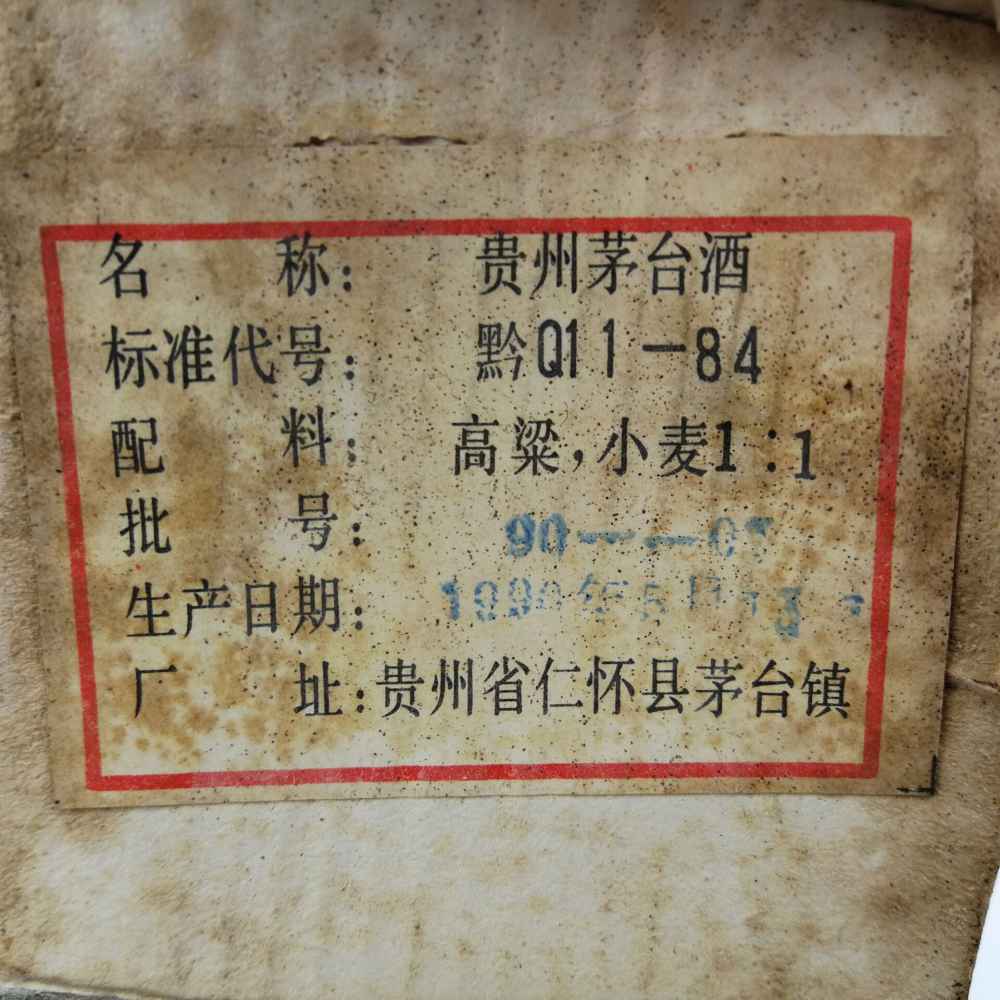 名 称: 贵州茅台酒
标准代号: 黔Q11-84
配 料: 高粱,小麦1:1
批 号: 90——0
生产日期: 1990年5月12
厂 址:贵州省仁怀县茅台镇